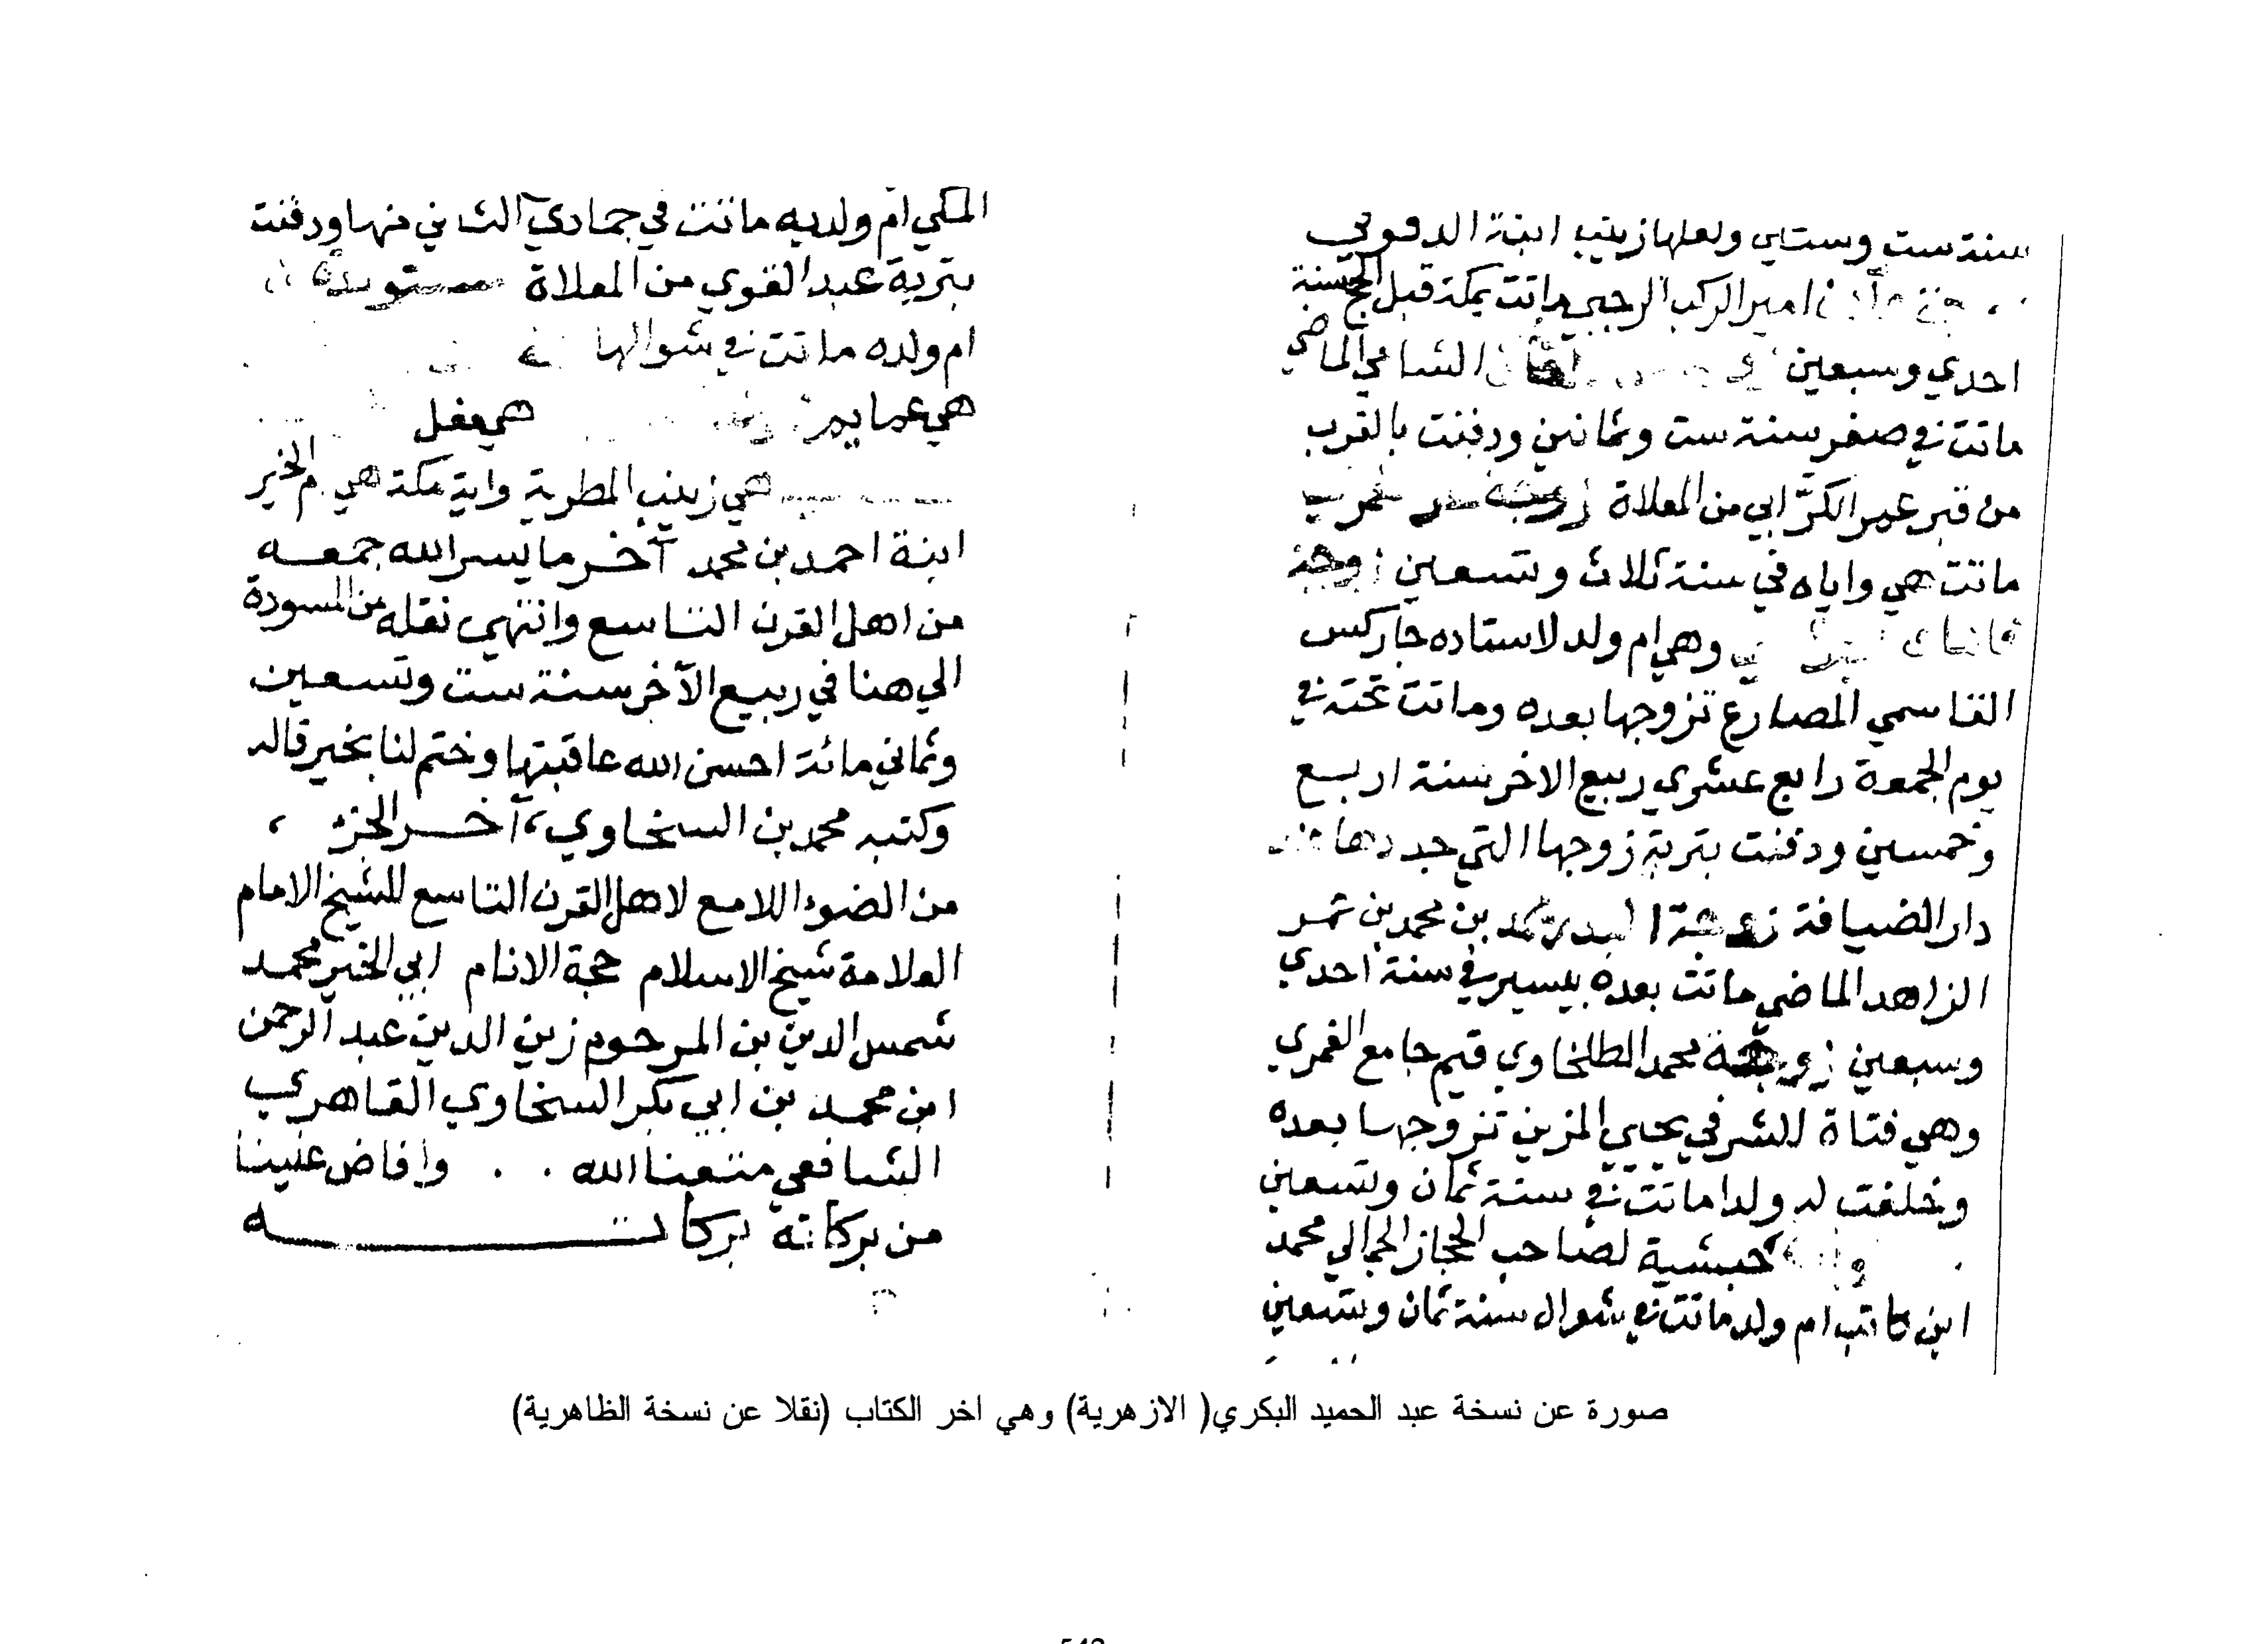 سنة ست وستين ولعلها زينب ابنة الدقوقي
امير الركب الرجبي ماتت بمكة قبل الحج سنة
احدي وسبعين الشامي الماضي
ماتت في صفر سنة ست وثمانين ودفنت بالقرب
من قبر عمر الكرّابي من المعلاة زوجة
ماتت هي واياه في سنة ثلاث وتسعين زوجة
وهي ام ولد لاستاده جاركس
القاسمي المصارع تزوجها بعده وماتت تحته في
يوم الجمعة رابع عشري ربيع الاخر سنة اربع
وخمسين ودفنت بتربة زوجها التي جددها
دار الضيافة زوجة البدر محمد بن محمد بن شمر
الزاهد الماضي ماتت بعده بيسير في سنة احدي
وسبعين زوجة محمد الطلخاوي قيم جامع الغمري
وهي فتاة للشرفي يحيي المزين تزوجها بعده
وخلفت له ولدا ماتت في سنة ثمان وتسعين
حبشية لصاحب الحجاز الجمالي محمد
ابن كاتب ام ولد ماتت في شوال سنة ثمان وتسعين
المكي ام ولديه ماتت في جمادي الثاني منها ودفنت
بتربة عبد القوي من المعلاة مستولدة
ام ولده ماتت في شوالها
هي عمايم هي مغل
هي زينب المطرية واية مكة هي ام الخير
ابنة احمد بن محمد آخر ما يسر الله جمعه
من اهل القرن التاسع وانتهي نقله من المسودة
الي هنا في ربيع الآخر سنة ست وتسعين
وثماني مائة احسن الله عاقبتها وختم لنا بخير قاله
وكتبه محمد بن السخاوي، آخر الجزء
من الضوء اللامع لاهل القرن التاسع للشيخ الامام
العلامة شيخ الاسلام حجة الانام ابي الخير محمد
شمس الدين بن المرحوم زين الدين عبد الرحمن
ابن محمد بن ابي بكر السخاوي القاهري
الشافعي متعنا الله وافاض علينا
من بركاته بركاته
صورة عن نسخة عبد الحميد البكري( الازهرية) وهي اخر الكتاب (نقلا عن نسخة الظاهرية)